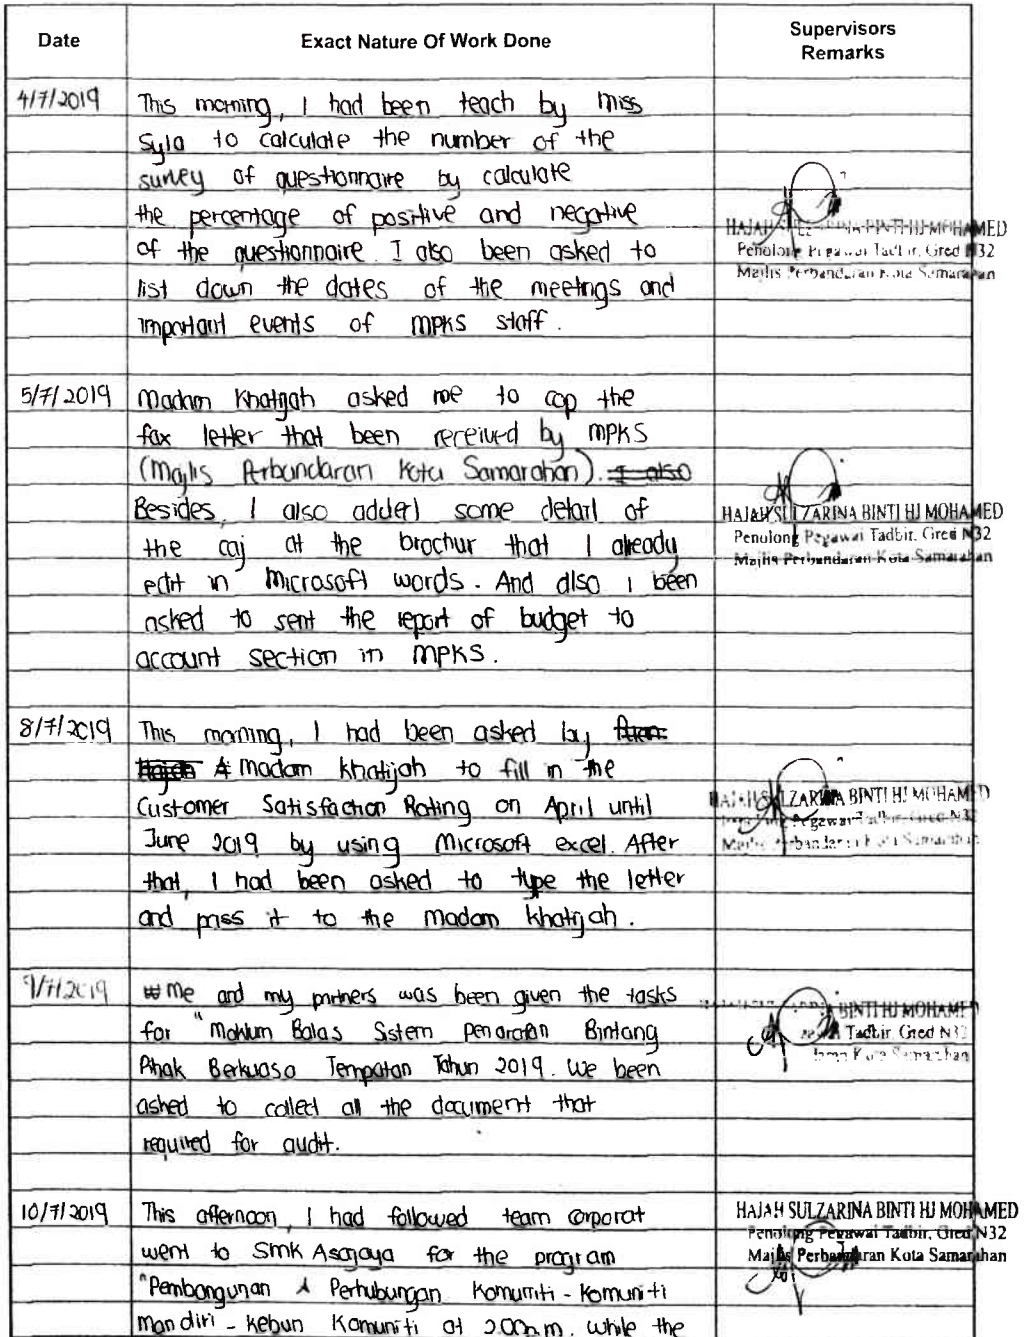 Date
Exact Nature Of Work Done
Supervisors
Remarks
4/7/2019
This morning, I had been teach by miss
Syla to calculate the number of the
survey of questionnaire by calculate
the percentage of positive and negative
of the questionnaire. I also been asked to
list down the dates of the meetings and
important events of MPKS staff.
HAJAH SULZARINA BINTI HJ MOHAMED
Penolong Pegawai Tadbir, Gred N32
Majlis Perbandaran Kota Samarahan
5/7/2019
Madam Khatijah asked me to cop the
fax letter that been received by MPKS
(Majlis Perbandaran Kota Samarahan). I also
Besides, I also added some detail of
the caj at the brochur that I already
edit in Microsoft words. And also i been
asked to sent the report of budget to
account section in MPKS.
HAJAH SULZARINA BINTI HJ MOHAMED
Penolong Pegawai Tadbir, Gred N32
Majlis Perbandaran Kota Samarahan
8/7/2019
This morning, I had been asked by
madam khatijah to fill in the
Customer Satisfaction Rating on April until
June 2019 by using Microsoft excel. After
that, I had been asked to type the letter
and pass it to the madam khatijah.
HAJAH SULZARINA BINTI HJ MOHAMED
Penolong Pegawai Tadbir, Gred N32
Majlis Perbandaran Kota Samarahan
9/7/2019
Me and my partners was been given the tasks
for "Maklum Balas Sistem penarafan Bintang
Pihak Berkuasa Tempatan Tahun 2019. We been
asked to collect all the document that
required for audit.
BINTI HJ MOHAMED
Tadbir, Gred N32
Kota Samarahan
10/7/2019
This afternoon, I had followed team corporat
went to SMK Asajaya for the program
"Pembangunan & Perhubungan Komuniti - Komuniti
mandiri - Kebun Komuniti at 2.00p.m. while the
HAJAH SULZARINA BINTI HJ MOHAMED
Penolong Pegawai Tadbir, Gred N32
Majlis Perbandaran Kota Samarahan